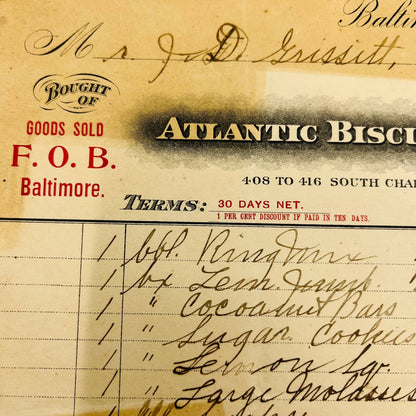 Baltim
Mr J. D. Grissitt,
BOUGHT OF
GOODS SOLD
F. O. B.
Baltimore.
ATLANTIC BISCU
408 TO 416 SOUTH CHA
TERMS: 30 DAYS NET.
1 PER CENT DISCOUNT IF PAID IN TEN DAYS.
1 bbl. King Mix
1 bx Lem. Jumb.
1 " Cocoanut Bars
1 " Sugar Cookies
1 " Lemon Sq.
1 " Large Molasses